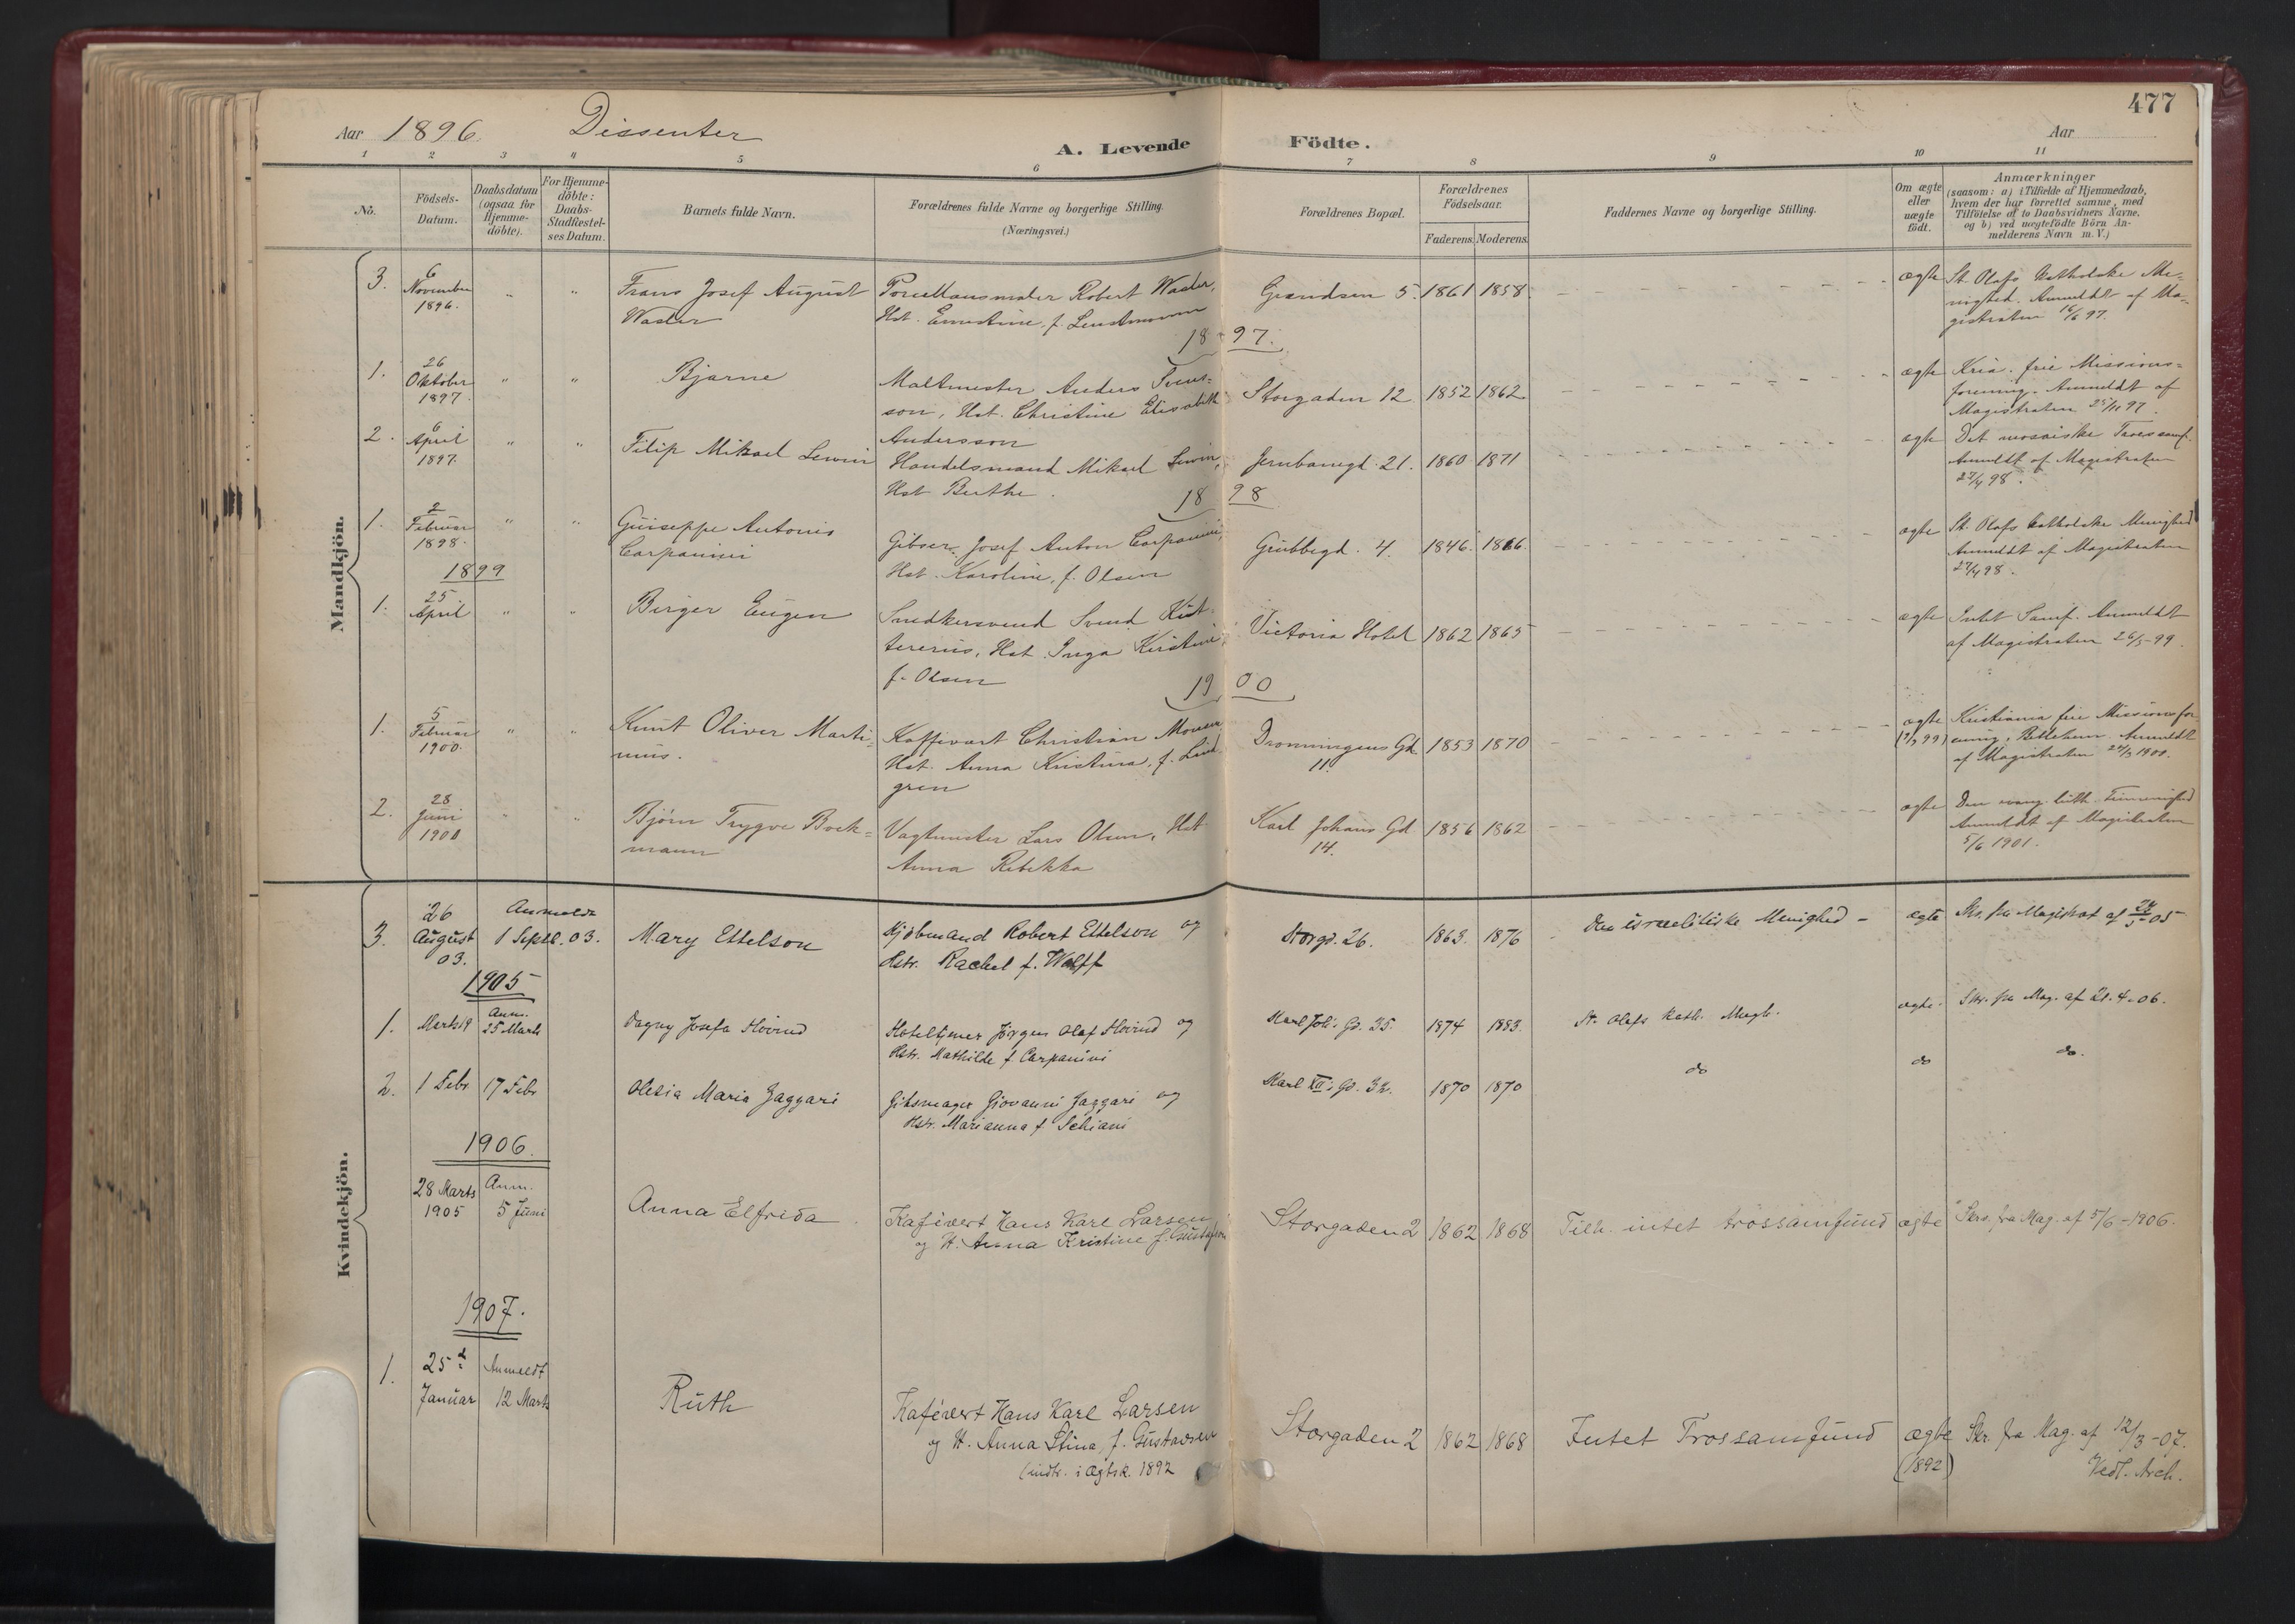 477
Aar 1896. Dissenter
A. Levende Födte.
Aar
1 2 3 4 5 6 7 8 9 10 11
No.
Födsels-
Datum.
Daabsdatum
(ogsaa for
Hjemme-
döbte).
For Hjemme-
döbte:
Daabs-
Stadfæstel-
ses Datum.
Barnets fulde Navn.
Forældrenes fulde Navne og borgerlige Stilling.
(Næringsvei.)
Forældrenes Bopæl.
Forældrenes
Födselsaar.
Faderens. Moderens.
Faddernes Navne og borgerlige Stilling.
Om ægte
eller
uægte
födt.
Anmærkninger
(saasom: a) i Tilfælde af Hjemmedaab,
hvem der har forrettet samme, med
Tilföielse af to Daabsvidners Navne.
og b) ved uægtefödte Börn An-
melderens Navn m. V.)
Mandkjön.
3. 6 November 1896. " " Frans Josef August
Wasler
Porcellansmaler Robert Wasler,
Hst. Ernestine, f.
Grændsen 5. 1861 1858. ægte St. Olafs Katholske Me-
nighed. Anmeldt af Ma-
gistraten 16/6 97.
1897.
1. 26 Oktober 1897. " " Bjarne
Maltmester Anders
son, Hst. Christine Elisabeth
Andersson
Storgaden 12 1852 1862 ægte Kria. frie Missions-
forening. Anmeldt af
Magistraten 25/11 97.
2. 6 April 1897. " " Filip Mikael Lewin
Handelsmand Mikael Lewin,
Hst Berthe.
Jernbanegd. 21. 1860 1871 ægte Det mosaiske Troessamf.
Anmeldt af Magistraten
27/4 98.
1898
1. 2 Februar 1898. " " Guiseppe Antonio
Carpanini
Gibser Josef Anton Carpanini,
Hst. Karoline, f. Olsen
Grubbegd. 4. 1846. 1866. ægte St. Olafs Katholske Menighed
Anmeldt af Magistraten
27/4 98.
1899
1. 25 April " " Birger Eugen
Snedkersvend Svend
Hst. Inga Kirstine,
f. Olsen
Victoria Hotel 1862 1865 ægte Intet Samf. Anmeldt
af Magistraten 26/5-99.
1900
1. 5 Februar 1900. " " Knut Oliver Marti-
nius.
Kaffevært Christian Monsen
Hst. Anna Kristina, f. Lind-
gren
Dronningens Gd.
11.
1853 1870 ægte Kristiania frie Missionsfor-
ening, Betlehem. Anmeldt
af Magistraten 24/3 1900.
2. 28 Juni 1900 " Bjørn Trygve Bock-
mann
Vagtmester Lars Olsen, Hst
Anna Rebekka
Karl Johans Gd
14.
1856 1862 ægte Den evang. luth. Frimenighed
Anmeldt af Magistraten
5/6 1901.
Kvindekjön.
3. 26 August 03. Anmeldt 1 Septb. 03. Mary Ettelson
Kjöbmand Robert Ettelson og
Hstr. Rachel f. Wolff
Storgd. 26. 1863. 1876 Den israelitiske Menighed - ægte Skr. fra Magistrat af 24/5 05
1905
1. Marts 19 Anm. 25 Marts Dagny Josefa Hovind
Hoteltjener Jörgen Olaf Hovind og
Hstr. Mathilde f Carpanini
Karl Joh's Gd. 35. 1874 1883. St. Olafs kath. Mngh. ægte. Skr. fra Mag. af 21.4.06.
2. 1 Febr 17 Febr Olesia Maria Jaggari
Gibsmager Giovanni Jaggari og
Hstr. Marianna f Schiani
Karl XII's Gd. 32. 1870 1870 do do do.
1906.
28 Marts 1905 Anm. 5 Juni Anna Elfrida
Kafévert Hans Karl Larsen
og H. Anna Kristine f. Gustafson
Storgaden 2 1862 1868 Tilh. intet trossamfund ægte Skr. fra Mag. af 5/6-1906.
1907.
1. 25de Januar Anmeldt 12 Marts Ruth
Kafévert Hans Karl Larsen
og H. Anna Stina, f. Gustavsen
(indtr. i Ægtsk. 1892
Storgaden 2 1862 1868 Intet Trossamfund ægte
(1892)
Skr. fra Mag. af 12/3-07.
Vedl. Arch.